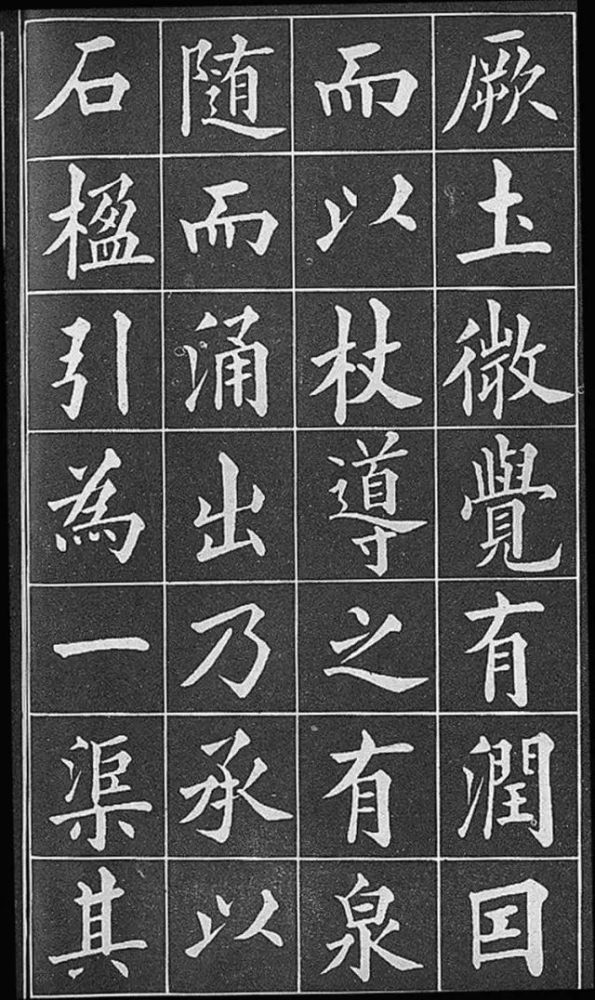 厥圡微覺有潤囙
而以杖導之有泉
随而涌出乃承以
石楹引為一渠其